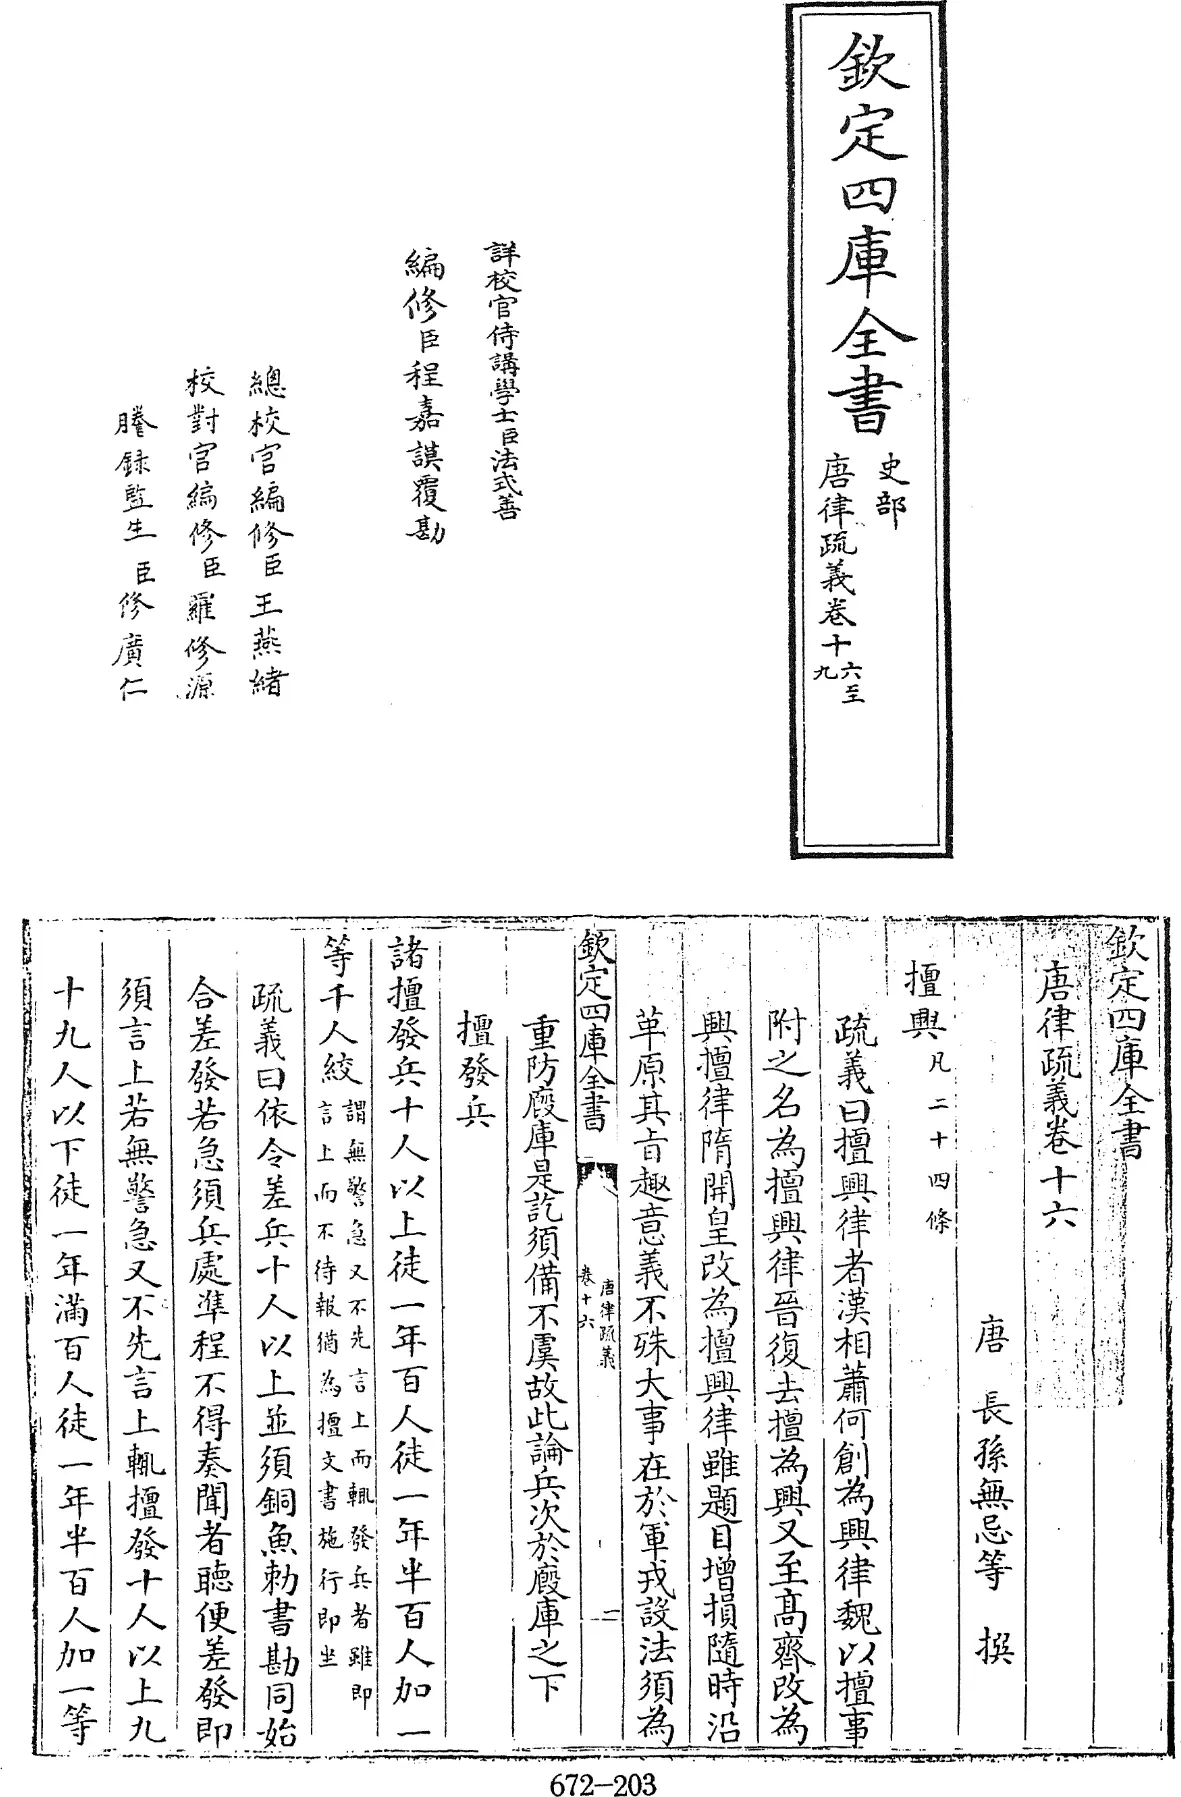 欽定四庫全書
史部
唐律疏義卷十六至
九
詳校官侍講學士臣法式善
編修臣程嘉謨覆勘
總校官編修臣王燕緒
校對官編修臣羅修源
謄錄監生臣修廣仁
欽定四庫全書
唐律疏義卷十六
唐 長孫無忌等 撰
擅興凡二十四條
疏義曰擅興律者漢相蕭何創為興律魏以擅事
附之名為擅興律晉復去擅為興又至高齊改為
興擅律隋開皇改為擅興律雖題目增損隨時沿
革原其㫖趣意義不殊大事在於軍戎設法須為
欽定四庫全書
唐律疏義
卷十六
二
重防廄庫是訖須備不虞故此論兵次於廄庫之下
擅發兵
諸擅發兵十人以上徒一年百人徒一年半百人加一
等千人絞
謂無警急又不先言上而輒發兵者雖即
言上而不待報猶為擅文書施行即坐
疏義曰依令差兵十人以上並須銅魚勅書勘同始
合差發若急須兵處準程不得奏聞者聽便差發即
須言上若無警急又不先言上輒擅發十人以上九
十九人以下徒一年滿百人徒一年半百人加一等
672-203